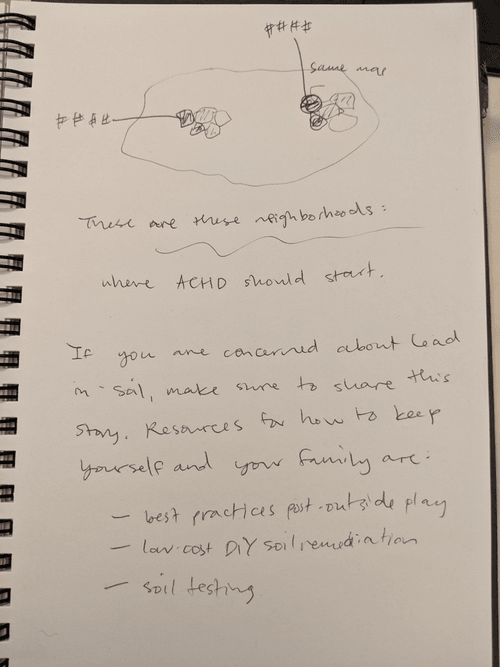 ####
same map
####
These are these neighborhoods:
where ACHD should start.
If you are concerned about lead
in soil, make sure to share this
story. Resources for how to keep
yourself and your family are:
— best practices post-outside play
— low-cost DIY soil remediation
— soil testing